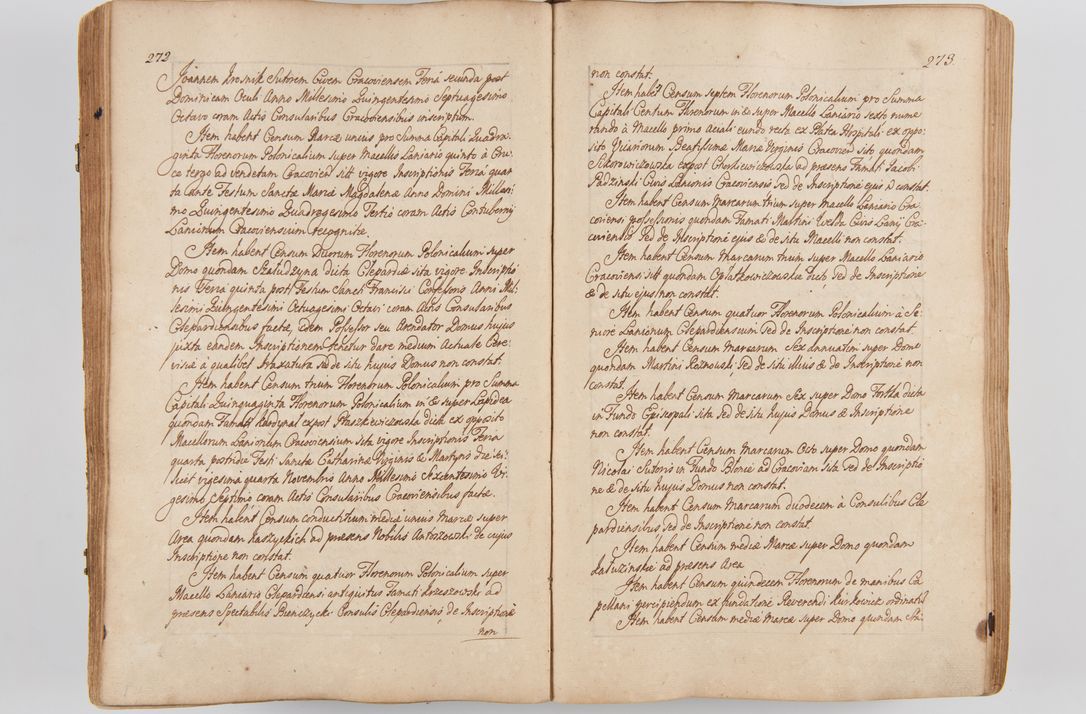 272
Joannem Krosnik Sutorem Civem Cracoviensem Feria secunda post
Dominicam Oculi Anno Millesimo Quingentesimo Septuagesimo
Octavo coram Actis Consularibus Cracoviensibus inscriptum.
Item habent Censum Marcæ unius pro Summa Capitali Quadra-
ginta Florenorum Polonicalium super Macellis Laniario quinto à Cru-
ce tergo ad vendetam Cracovien: sit vigore Inscriptionis Feria quar-
ta ante Festum Sanctæ Mariæ Magdalenæ Anno Domini Millesi-
mo Quingentesimo Quadragesimo Tertio coram Actis Contubernij
Laniorum Cracoviensium recognitæ.
Item habent Censum Duorum Florenorum Polonicalium super
Domo quondam dicta Clepardiæ sita vigore Inscriptio-
nis Feria quinta post Festum Sancti Francisci Confessoris Anni Mil-
lesimi Quingentesimi Octuagesimi Octavi coram Actis Consularibus
Clepardiensibus factæ, idem Possessor seu Arendator Domus hujus
juxta eandem Inscriptionem tenetur dare medium Actuale Cere-
visiæ à qualibet braxatura sed de situ hujus Domus non constat.
Item habent Censum trium Florenorum Polonicalium pro Summa
Capitali Quinquaginta Florenorum Polonicalium in & super Lapidea
quondam Famati expost Ptaszkiewiczowska dicta ex opposito
Macellorum Laniorum Cracoviensium sita vigore Inscriptionis Feria
quarta postridie Festi Sanctæ Catharinæ Virginis & Martyris die sci-
licet vigesima quarta Novembris Anno Millesimo Sexcentesimo Vi-
gesimo Septimo coram Actis Consularibus Cracoviensibus factæ.
Item habent Censum conductitium mediæ unius Marcæ super
Area quondam Kaszyckich ad præsens Nobilis Antoszowski de cujus
Inscriptione non constat.
Item habent Censum quatuor Florenorum Polonicalium super
Macello Laniario Clepardiensi antiquitus Famati Krzeszowski ad
præsens Spectabilis Branczycki Consulis Clepardiensis de Inscriptione
non
273.
non constat.
Item habet Censum septem Florenorum Polonicalium pro Summa
Capitali Centum Florenorum in & super Macello Laniario sexto nume-
rando à Macello primo Aciali eundo recta ex Platea Hospitali ex oppo-
sito Vicariorum Beatissimæ Mariæ Virginis Cracovien: sito, quondam
Sikorowiczowska expost Chorkiewiczowska ad præsens Famati Jacobi
Padzinski Civis Lanionis Cracoviensis sed de Inscriptione ejus non constat.
Item habent Censum Marcarum trium super macello Laniario Cra-
coviensi possessionis quondam Famati Martini Civis Lanij Cra-
coviensis sed de Inscriptione ejus & de situ Macelli non constat.
Item habent Censum marcarum trium super Macello Laniario
Cracoviensi sit quondam Oplatkowiczowskie dicto sed de Inscriptione
& de situ ejus non constat.
Item habent Censum quatuor Florenorum Polonicalium à Se-
niore Lanionum Clepardiensium sed de Inscriptione non constat.
Item habent Censum marcarum Sex annuatim super Domo
quondam Martini Reznowski, sed de situ illius & de Inscriptione non
constat.
Item habent Censum Marcarum Sex super Domo Fortka dicta
in Fundo Episcopali sita sed de situ hujus Domus & Inscriptione
non constat.
Item habent Censum Marcarum Octo super Domo quondam
Nicolai Sutoris in Fundo Blonie ad Cracoviam sita sed de Inscriptio-
ne & de situ hujus Domus non constat.
Item habent Censum Marcarum duodecem à Consulibus Cle-
pardiensibus, sed de Inscriptione non constat.
Item habent Censum mediæ Marcæ super Domo quondam
ad præsens Area
Item habent Censum quindecem Florenorum de manibus Ca-
pellani percipiendum ex fundatione Reverendi Kurkowick ordinatis
Item habent Censum mediæ Marcæ super Domo quondam Chi-